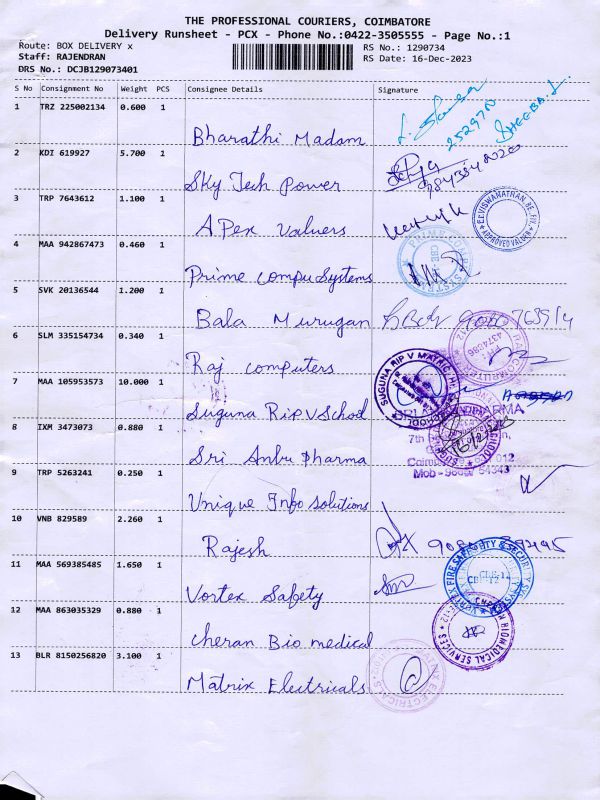 THE PROFESSIONAL COURIERS, COIMBATORE
Delivery Runsheet - PCX - Phone No.:0422-3505555 - Page No.:1
Route: BOX DELIVERY x RS No.: 1290734
Staff: RAJENDRAN RS Date: 16-Dec-2023
DRS No.: DCJB129073401
S No Consignment No Weight PCS Consignee Details Signature
1 TRZ 225002134 0.600 1
Bharathi Madam
SHEEBA.L.
2 KDI 619927 5.700 1
Sky Tech Power
3 TRP 7643612 1.100 1
APex Valuers
APPROVED VALUER
4 MAA 942867473 0.460 1
Prime compu Systems
PRIME COMPU SYSTEMS CBE
5 SVK 20136544 1.200 1
Bala Murugan
6 SLM 335154734 0.340 1
Raj computers
7 MAA 105953573 10.000 1
Suguna Rip V School
SUGUNA RIP V MATRIC HR. SCHOOL
8 IXM 3473073 0.880 1
Sri Anbu Pharma
9 TRP 5263241 0.250 1
Unique Info Solutions
10 VNB 829589 2.260 1
Rajesh
11 MAA 569385485 1.650 1
Vortex Safety
VORTEX FIRE SAFETY & SECURITY SYSTEMS
12 MAA 863035329 0.880 1
Cheran Bio medical
CHERAN BIOMEDICAL SERVICES
13 BLR 8150256820 3.100 1
Matrix Electricals
MATRIX ELECTRICALS